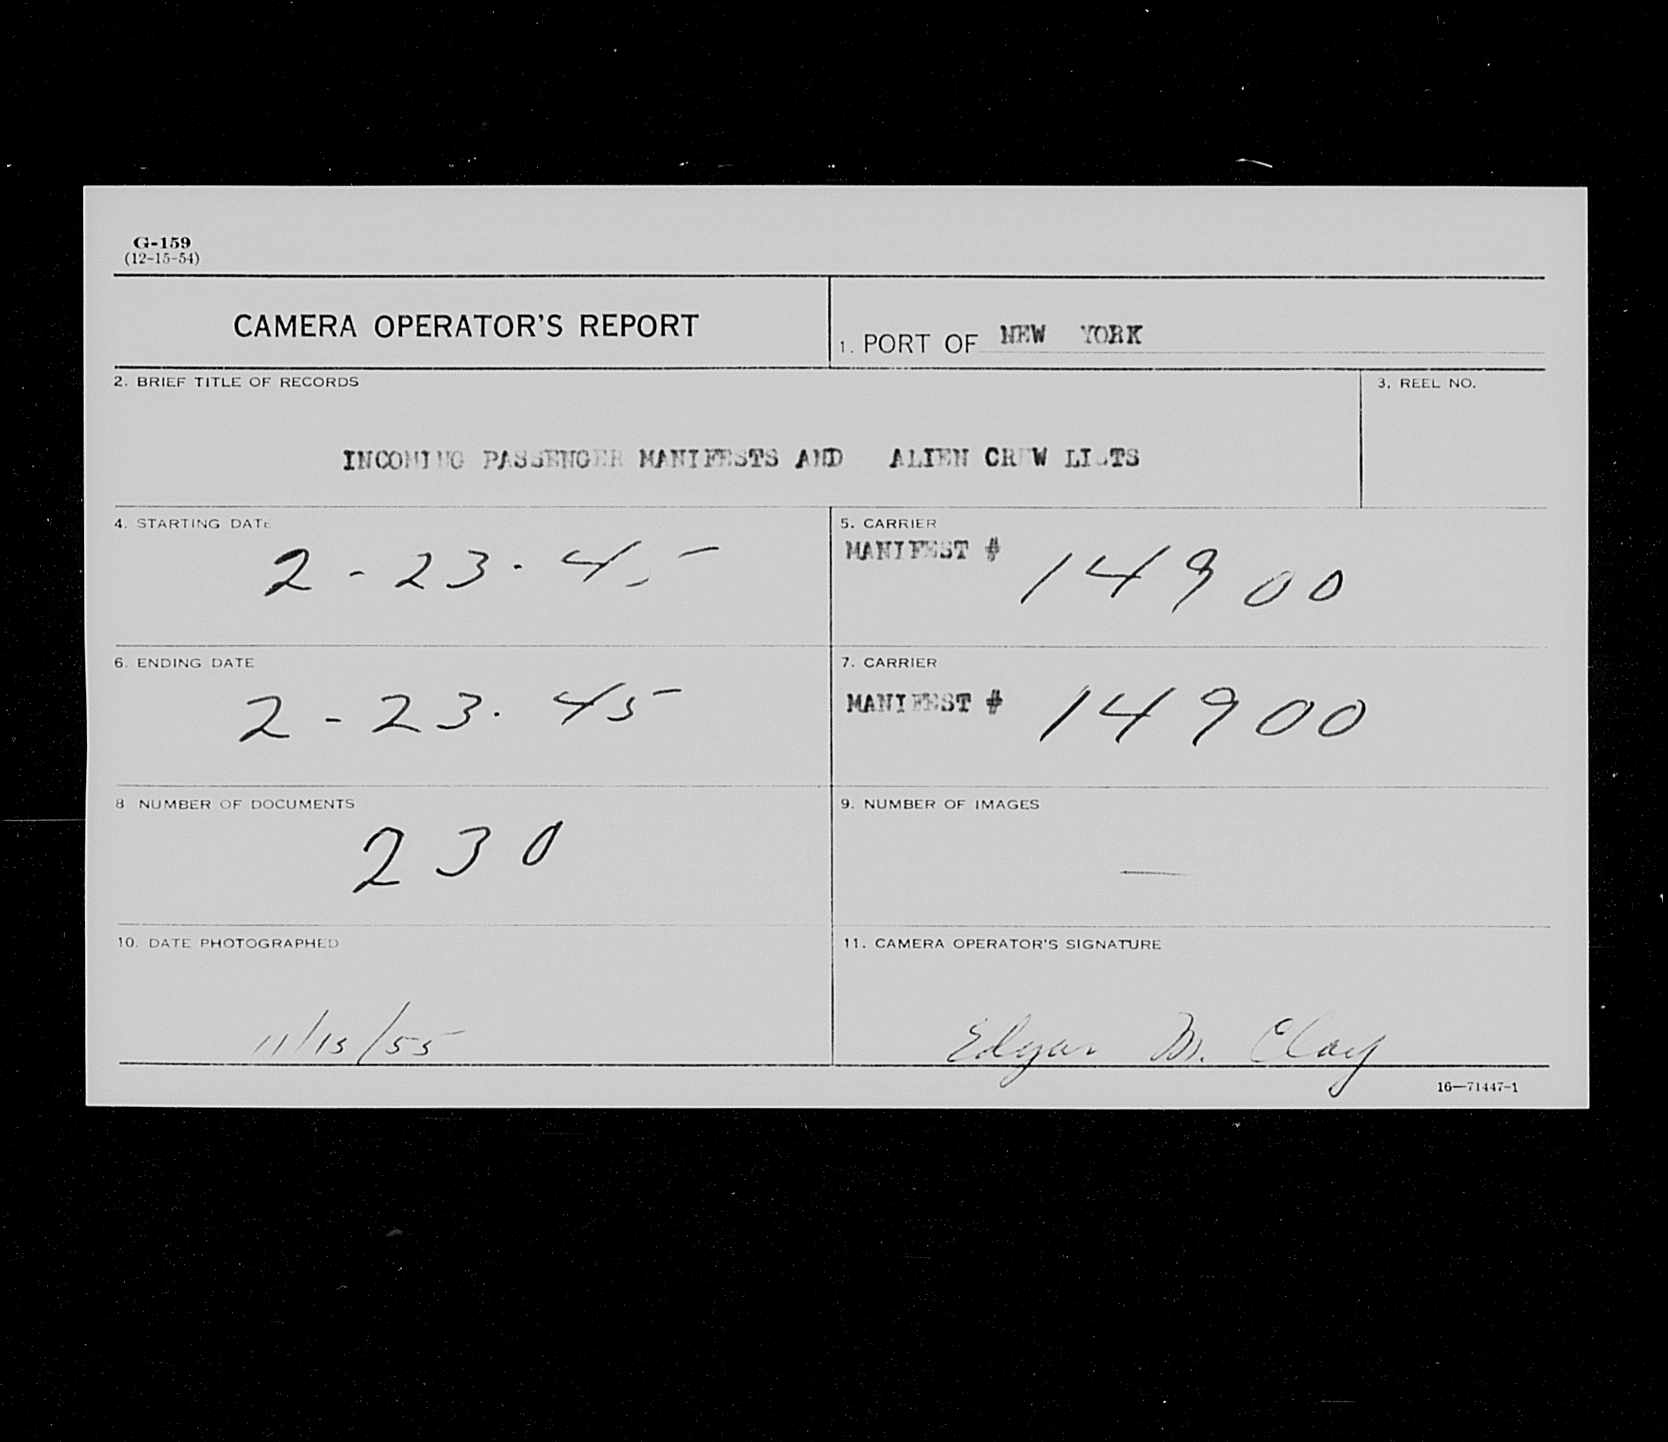 G-159
(12-15-54)
CAMERA OPERATOR'S REPORT
1. PORT OF NEW YORK
2. BRIEF TITLE OF RECORDS
3. REEL NO.
INCOMING PASSENGER MANIFESTS AND ALIEN CREW LISTS
4. STARTING DATE
2-23-45
5. CARRIER
MANIFEST # 14900
6. ENDING DATE
2-23-45
7. CARRIER
MANIFEST # 14900
8 NUMBER OF DOCUMENTS
230
9. NUMBER OF IMAGES
—
10. DATE PHOTOGRAPHED
11/15/55
11. CAMERA OPERATOR'S SIGNATURE
Edgar M. Clay
16—71447-1